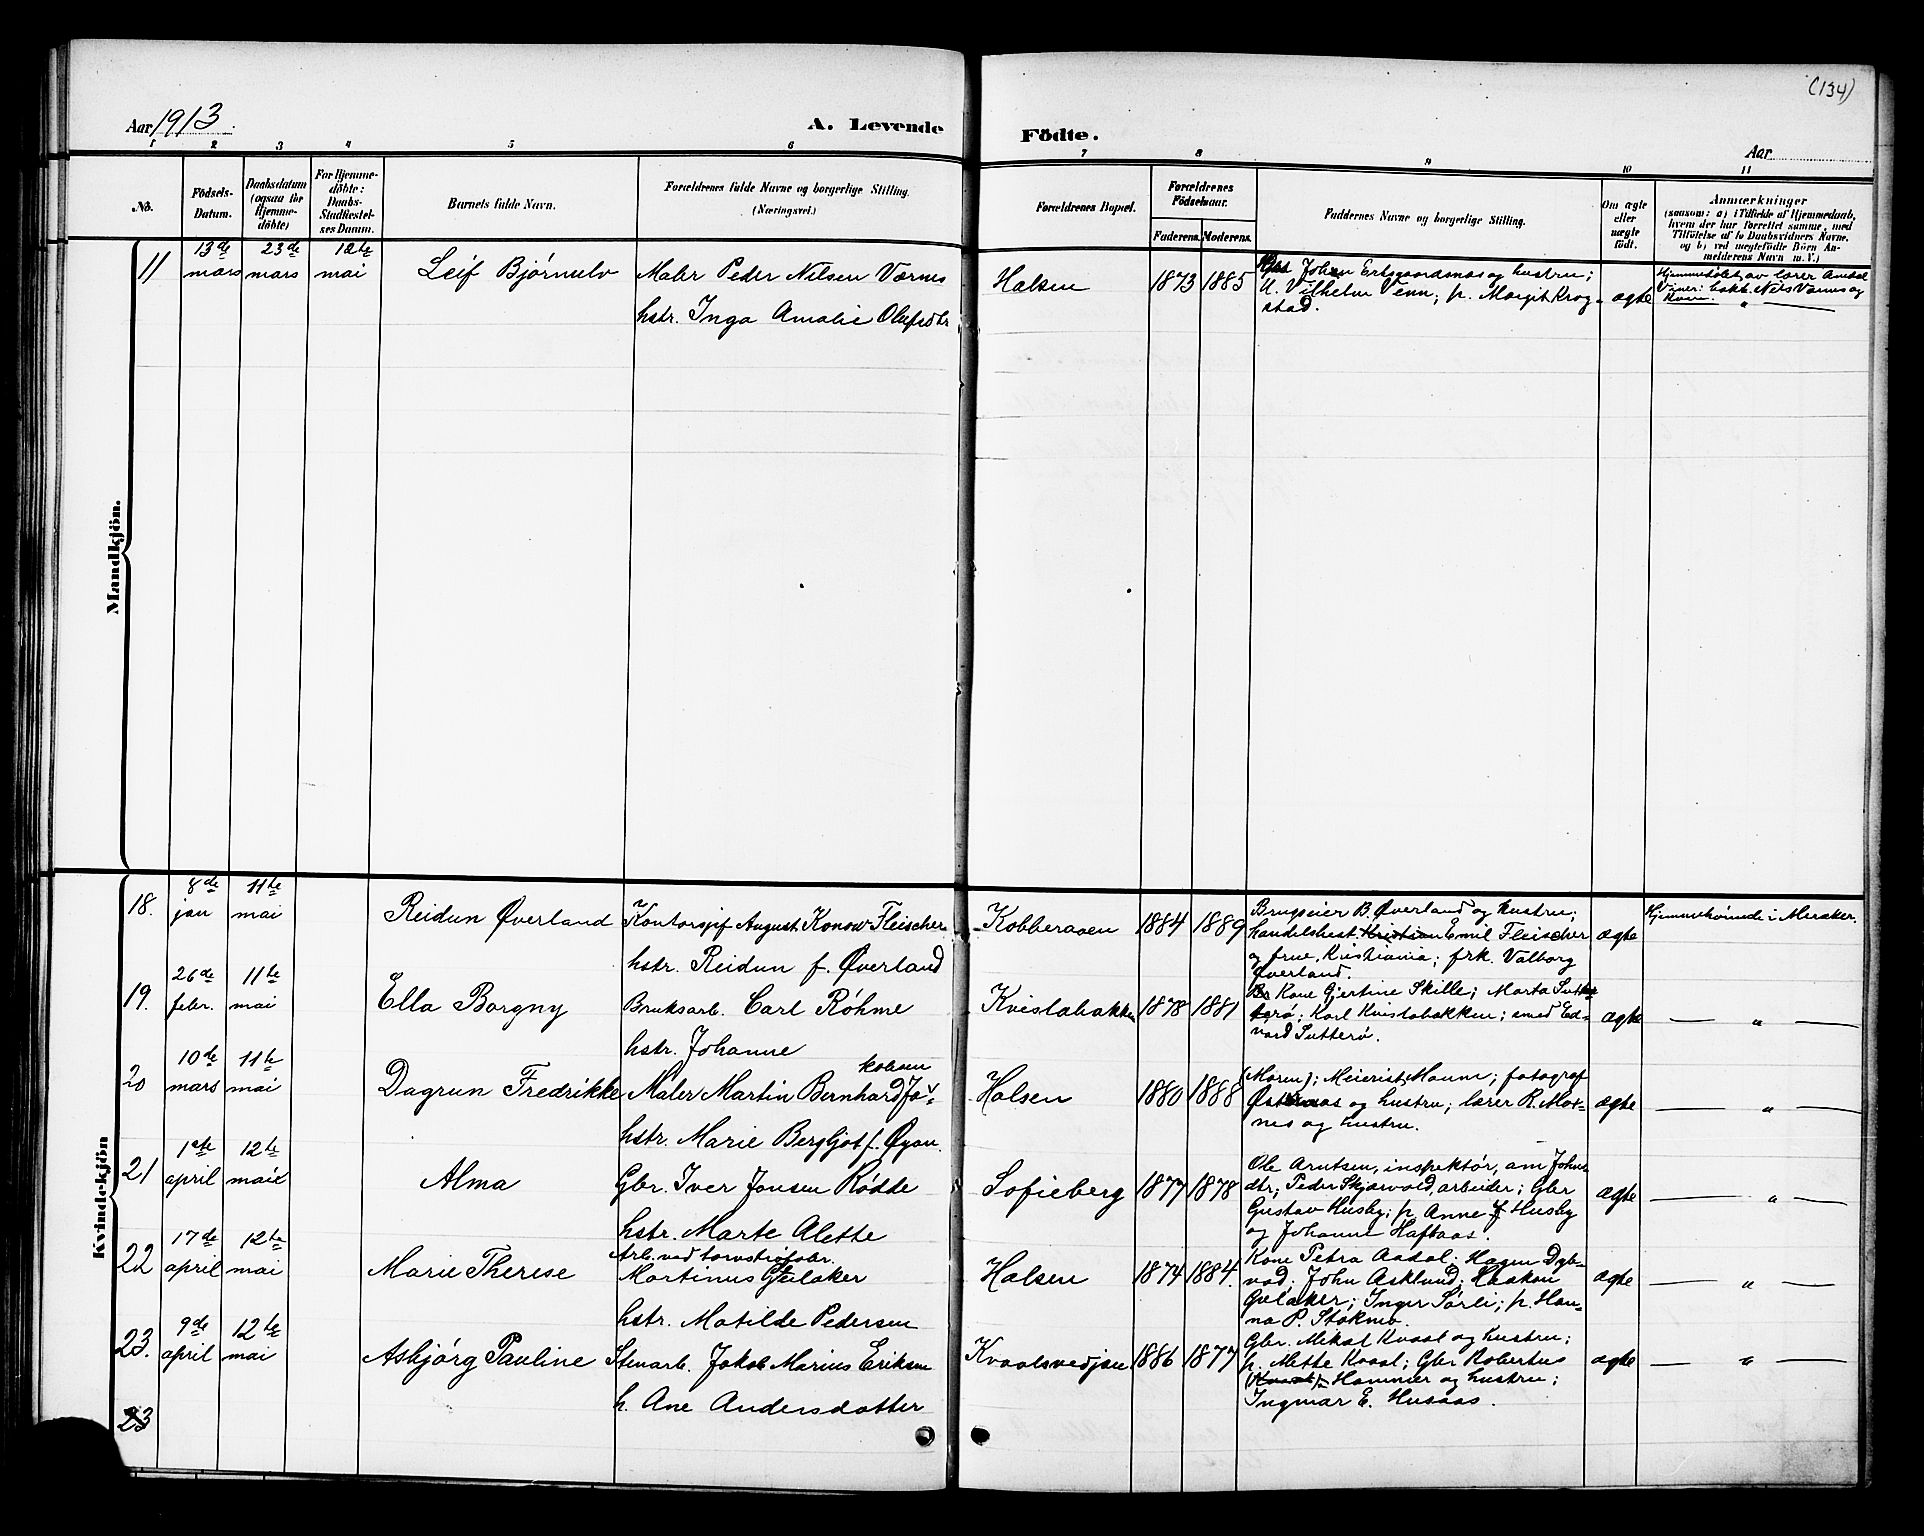 (134)
Aar 1913.
A. Levende
Födte.
Aar
1 2 3 4 5 6 7 8 9 10 11
No.
Födsels-Datum.
Daabsdatum (ogsaa for Hjemme-döbte)
For Hjemme-döbte: Daabs-Stadfæstel-ses Datum.
Barnets fulde Navn.
Forældrenes fulde Navne og borgerlige Stilling. (Næringsvei.)
Forældrenes Bopæl.
Forældrenes Födselsaar.
Faderens. Moderens.
Faddernes Navne og borgerlige Stilling.
Om ægte eller uægte födt.
Anmærkninger
(saasom: a) i Tilfælde af Hjemmedaab,
hvem der har forrettet samme, med
Tilföielse af to Daabsvidners Navne,
og b) ved uægtefödte Börn An-
melderens Navn m. V.)
Mandkjön.
11 13de mars 23de mars 12te mai Leif Bjørnulv
Maler Peder Nilsen Værnes
hstr. Inga Amalie Olufsdtr
Halsen 1873 1885
Johan Ertsgaardsmos og hustru;
U. Vilhelm Venn; p. Margit Krog-
stad.
ægte
Hjemmedøbt av lærer Amdal
Viner: bakb. Nils Værnes og
Kone. " —
Kvindekjön
18. 8de jan 11te mai Reidun Øverland
Kontorsjef August Konow Fleischer
hstr. Reidun f. Øverland
Kobberaaen 1884 1889
Brugseier B. Øverland og hustru;
handelsbest. Kristian Emil Fleischer
og frue, Kristiania; frk. Valborg
Øverland.
ægte
Hjemmehörende i Meraker.
19. 26de febr. 11te mai Ella Borgny
Bruksarb. Carl Röhme
hstr. Johanne
Kvistabakken 1878 1881
Kone Gjertine Skille; Marta Sutte-
rö; Karl Kvistabakken; smed Ed-
vard Sutterö.
ægte — " —
20 10de mars 11te mai Dagrun Fredrikke
Maler Martin Bernhard Ja-
kobsen
hstr. Marie Bergljot f. Øyan
Halsen 1880 1888
(Moren); Meierist Moum; fotograf
Østeraas og hustru; lærer R. Mos-
nes og hustru.
ægte — " —
21 1ste april 12te mai Alma
Gbr. Iver Jonsen Rödde
hstr. Marte Alette
Sofieberg 1877 1878
Ole Arntsen, inspektör, am Johns-
dtr; Peder Skjærvold, arbeider; Gbr
Gustav Husby; p. Anne J Husby
og Johanne Haftaas.
ægte — " —
22 17de april 12te mai Marie Therese
Arb. ved torvströfabr.
Martinus Gvilaker
hstr. Matilde Pedersen
Halsen 1874 1884.
Kone Petra Aadal; Hagen Dyb-
vad; John Asklund; Haakon
Gvilaker; Inger Sörli; p. Han-
na P. Stokmo.
ægte — " —
23. 9de april 12te mai Asbjörg Pauline
Stenarb. Jakob Marius Eriksen
h. Ane Andersdatter
Kvaalsvedjen 1886 1877
Gbr. Mikal Kvaal og hustru;
p. Mette Kvaal; Gbr Robertus
(Kvaal) Hammer og hustru;
Ingmar E. Husaas.
ægte — " —
23